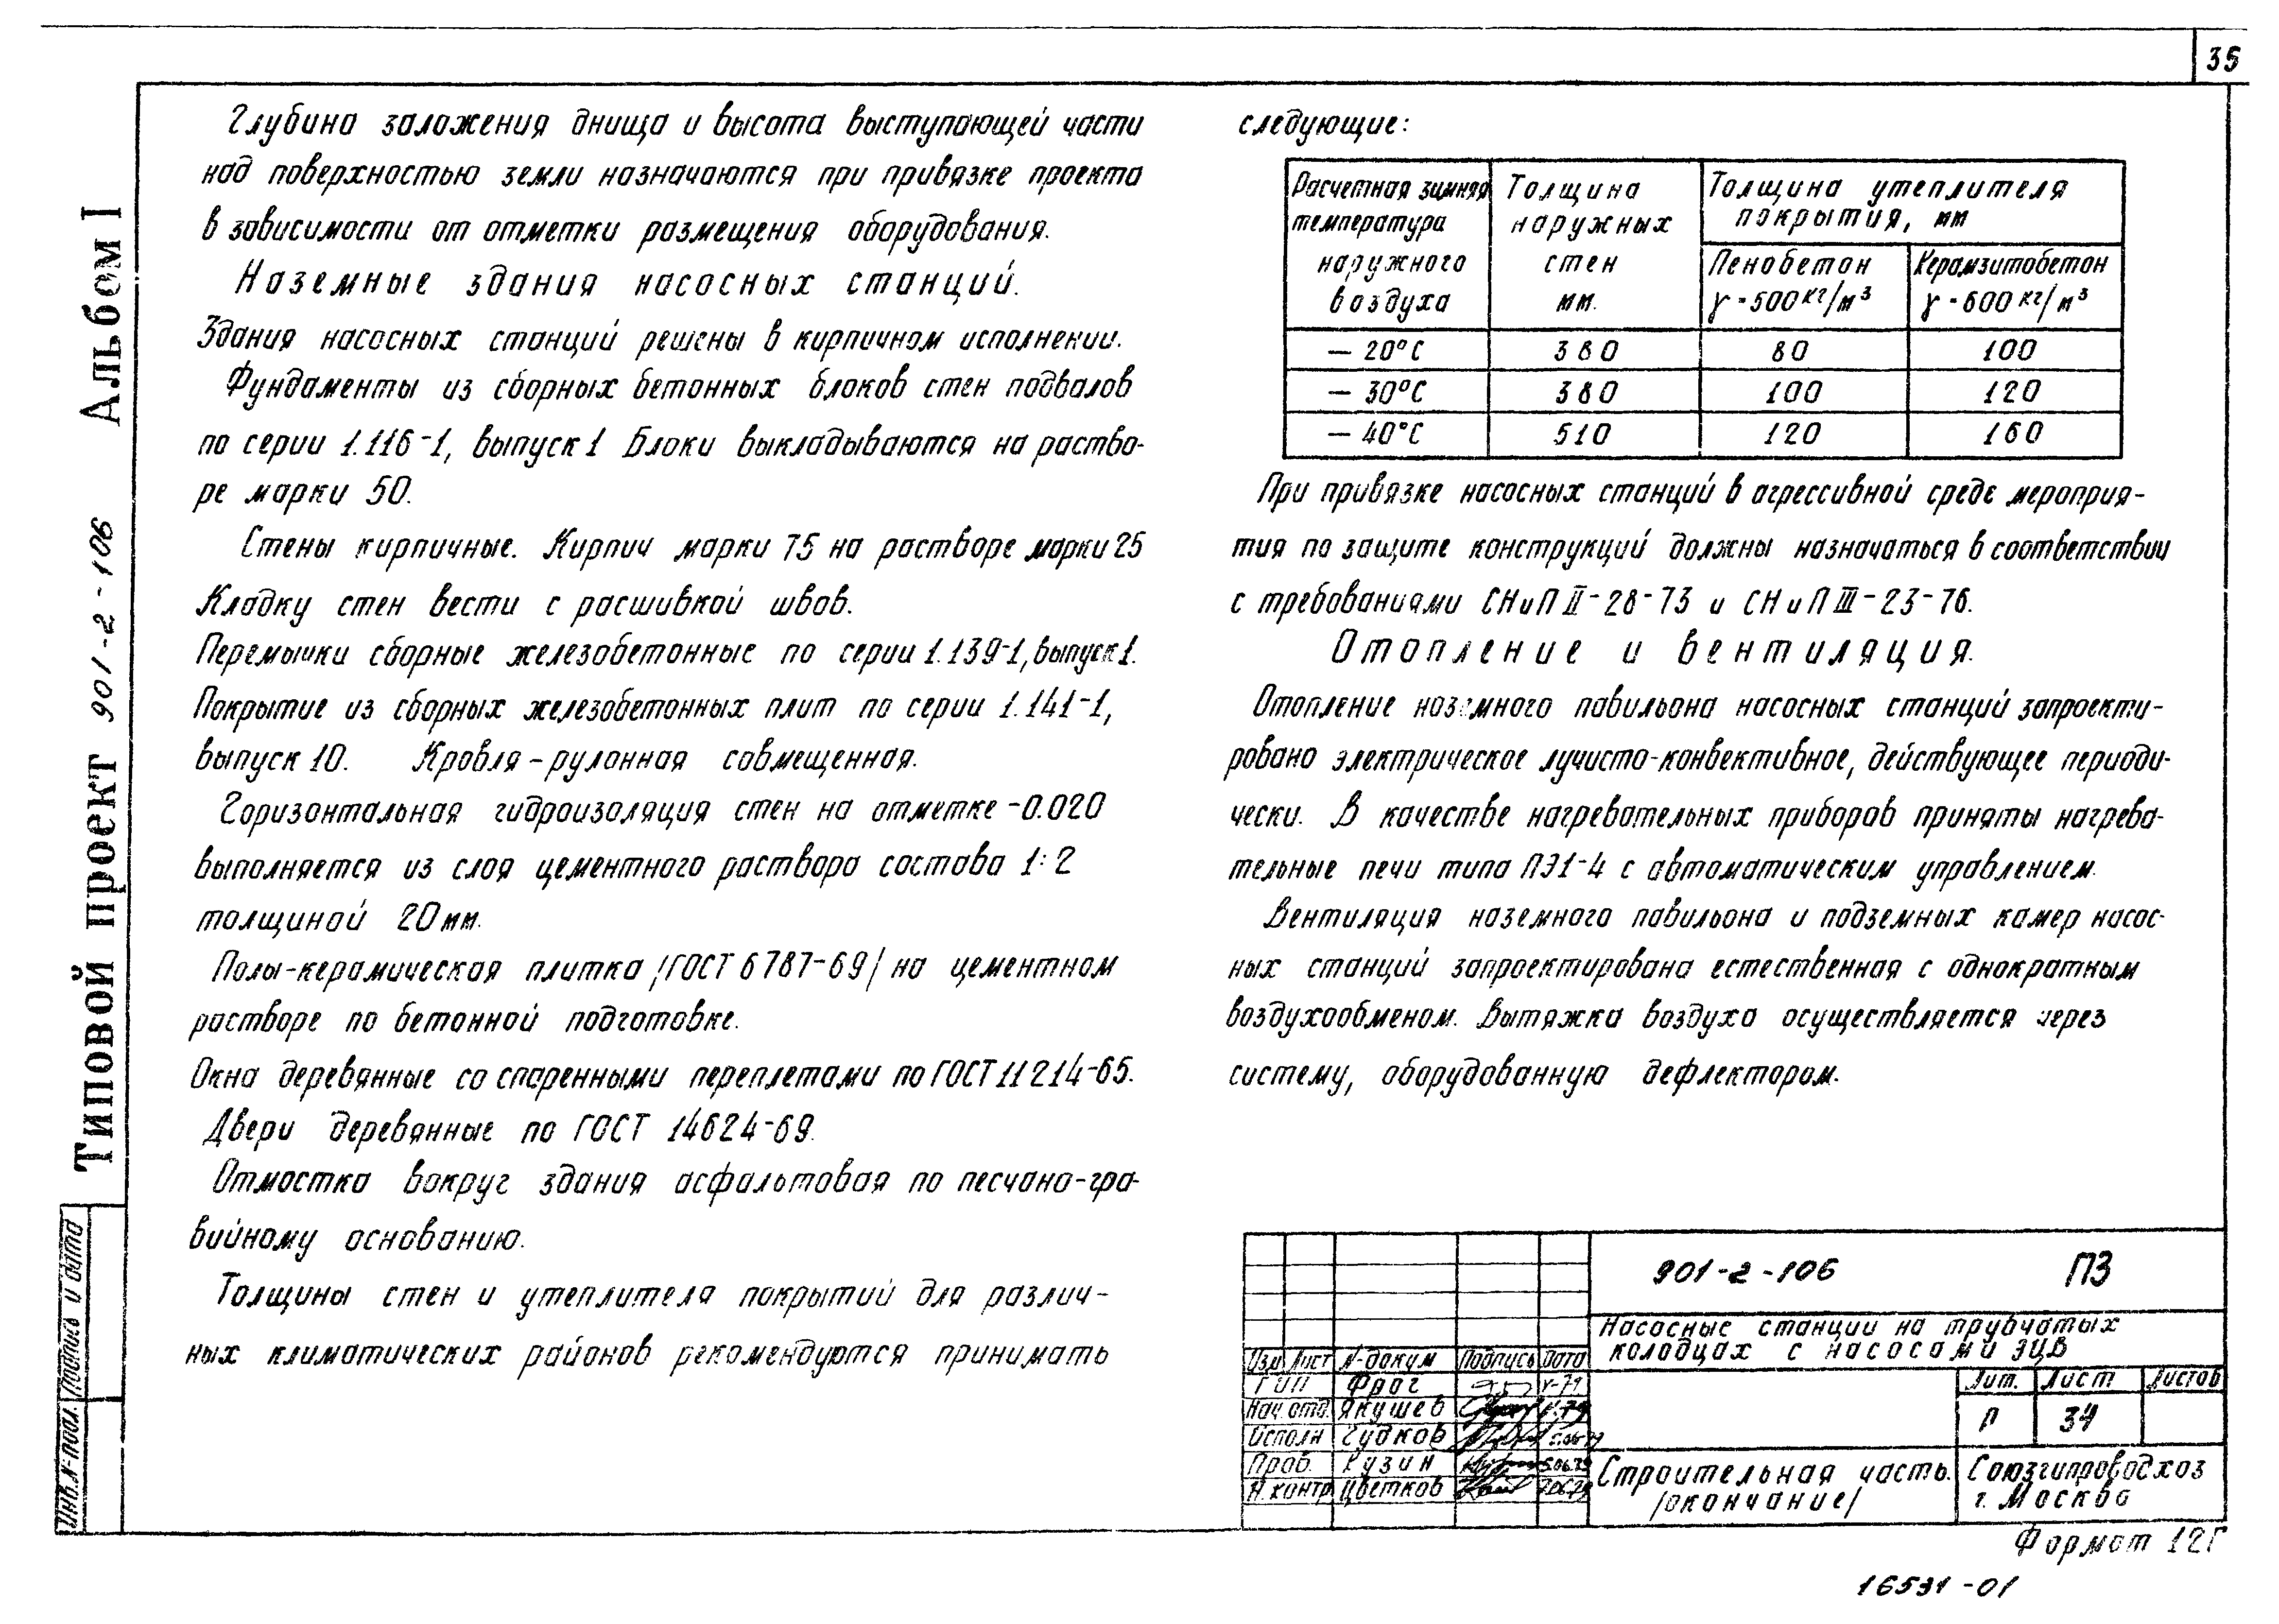 35
Глубина заложения днища и высота выступающей части
над поверхностью земли назначаются при привязке проекта
в зависимости от отметки размещения оборудования.
Наземные здания насосных станций.
Здания насосных станций решены в кирпичном исполнении.
Фундаменты из сборных бетонных блоков стен подвалов
по серии 1.116-1, выпуск 1 Блоки выкладываются на раство-
ре марки 50.
Стены кирпичные. Кирпич марки 75 на растворе марки 25
Кладку стен вести с расшивкой швов.
Перемычки сборные железобетонные по серии 1.139-1, выпуск 1.
Покрытие из сборных железобетонных плит по серии 1.141-1,
выпуск 10. Кровля - рулонная совмещенная.
Горизонтальная гидроизоляция стен на отметке -0.020
выполняется из слоя цементного раствора состава 1:2
толщиной 20мм.
Полы-керамическая плитка /ГОСТ 6787-69/ на цементном
растворе по бетонной подготовке.
Окна деревянные со спаренными переплетами по ГОСТ 11214-65.
Двери деревянные по ГОСТ 14624-69.
Отмостка вокруг здания асфальтовая по песчано-гра-
вийному основанию.
Толщины стен и утеплителя покрытий для различ-
ных климатических районов рекомендуются принимать
следующие:
Расчетная зимняя температура наружного воздуха
Толщина наружных стен мм.
Толщина утеплителя покрытия, мм
Пенобетон γ=500 кг/м³
Керамзитобетон γ=600 кг/м³
— 20°С 380 80 100
— 30°С 380 100 120
— 40°С 510 120 160
При привязке насосных станций в агрессивной среде мероприя-
тия по защите конструкций должны назначаться в соответствии
с требованиями СНиП II-28-73 и СНиП III-23-76.
Отопление и вентиляция.
Отопление наземного павильона насосных станций запроекти-
ровано электрическое лучисто-конвективное, действующее периоди-
чески. В качестве нагревательных приборов приняты нагрева-
тельные печи типа ПЭ1-4 с автоматическим управлением.
Вентиляция наземного павильона и подземных камер насос-
ных станций запроектирована естественная с однократным
воздухообменом. Вытяжка воздуха осуществляется через
систему, оборудованную дефлектором.
Типовой проект 901-2-106 Альбом I
Инв.N-подл. Подпись и дата
901-2-106 ПЗ
Насосные станции на трубчатых
колодцах с насосами ЭЦВ
Изм Лист N-докум Подпись Дата
ГИП Фрог V-79
Нач.отд. Якушев V-79
Исполн Гудков 5.06.79
Пров. Кузин 5.06.79
Н.контр Цветков 7.06.79
Лит. Лист Листов
Р 34
Строительная часть.
/окончание/
Союзгипроводхоз
г. Москва
Формат 12Г
16531-01